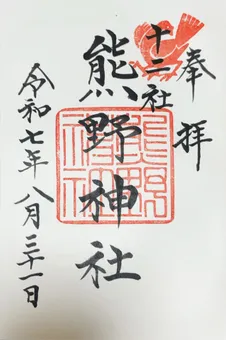 奉拝
十二社
熊野神社
令和七年八月三十一日